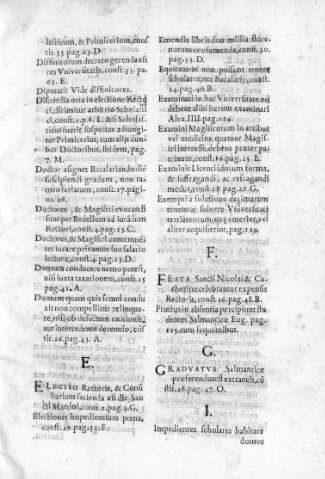 lasticum, & Primicerium, const
tit. 33. pag. 43. D.
Diffinitorum decreto gerenda est
res Vniuersitatis, const. 33. pa.
63. E.
Diputati: Vide diffinitores.
Discordia orta in electione Recto
ri, dirimitur arbitrio Scholasti
ci, const. 1.
ticus fuerit suspectus adiungi
tur Primicerius, cum alijs duo
bus Doctoribus, ibidem, pag.
7. M.
Doctor assignet Bacalariando die
suscipiendi gradum, non ta
men feriatum, const. 17. pagi
na. 26.
Doctores, & Magistri euocandi
sunt per Bedellum ad iurádum
Rectori, const. 4. pag. 13. C.
Doctores, & Magistri contemnéntes
iurare priuantur suo salario
lecturæ, const. 4. pag. 13. D.
Domum conducere nemo potest,
nisi iuxta taxationem, const. 25
pag. 41. A.
Domum quam quis semel condu
xit non compellitur relinque-
re, nisi ob defectum cautionis,
aut intercedente decennio, cós
tit. 26. pag. 45. A.
E.
ELECTIO Rectoris, & Consi
liarium facienda est die San
cti Martini, const. 1. pag. 5. G.
Electiones impediencium pœna,
const. 22. pag. 33. F.
Emendi libris duo millia flore-
norum consumenda, const. 30.
pag. 53. D.
Equitaturas non possunt tenere
scholares, nec Bacalarij, const.
24. pag. 40. B.
Examinati in hac Vniuersitate nó
debent alibi iterum examinari
Alex. IIII. pag. 124.
Examini Magistrorum in artibus
vel medicina quatuor Magis-
tri interesse debent præter pa-
trinum, const. 16. pag. 25. E.
Examinis Licenciádorum forma,
& suffragandi, ac refragandi
modus, const. 18 pag. 29. G.
Exempti a solutione decimarum
tenentur soluere Vniuersitati
F.
FESTA Sancti Nicolai & Ca-
therinæ celebrantur expensis
Rectoris, const. 26. pag. 48. B.
Fructus in absentia percipiunt stu
dentes Salmanticæ Eug. pag.
123. cum sequentibus.
G.
GRADVATVS Salmanticæ
præferendus est extraneis, có
stit. 28. pag. 47. O.
I.
Impedientes scholares habitare
domos